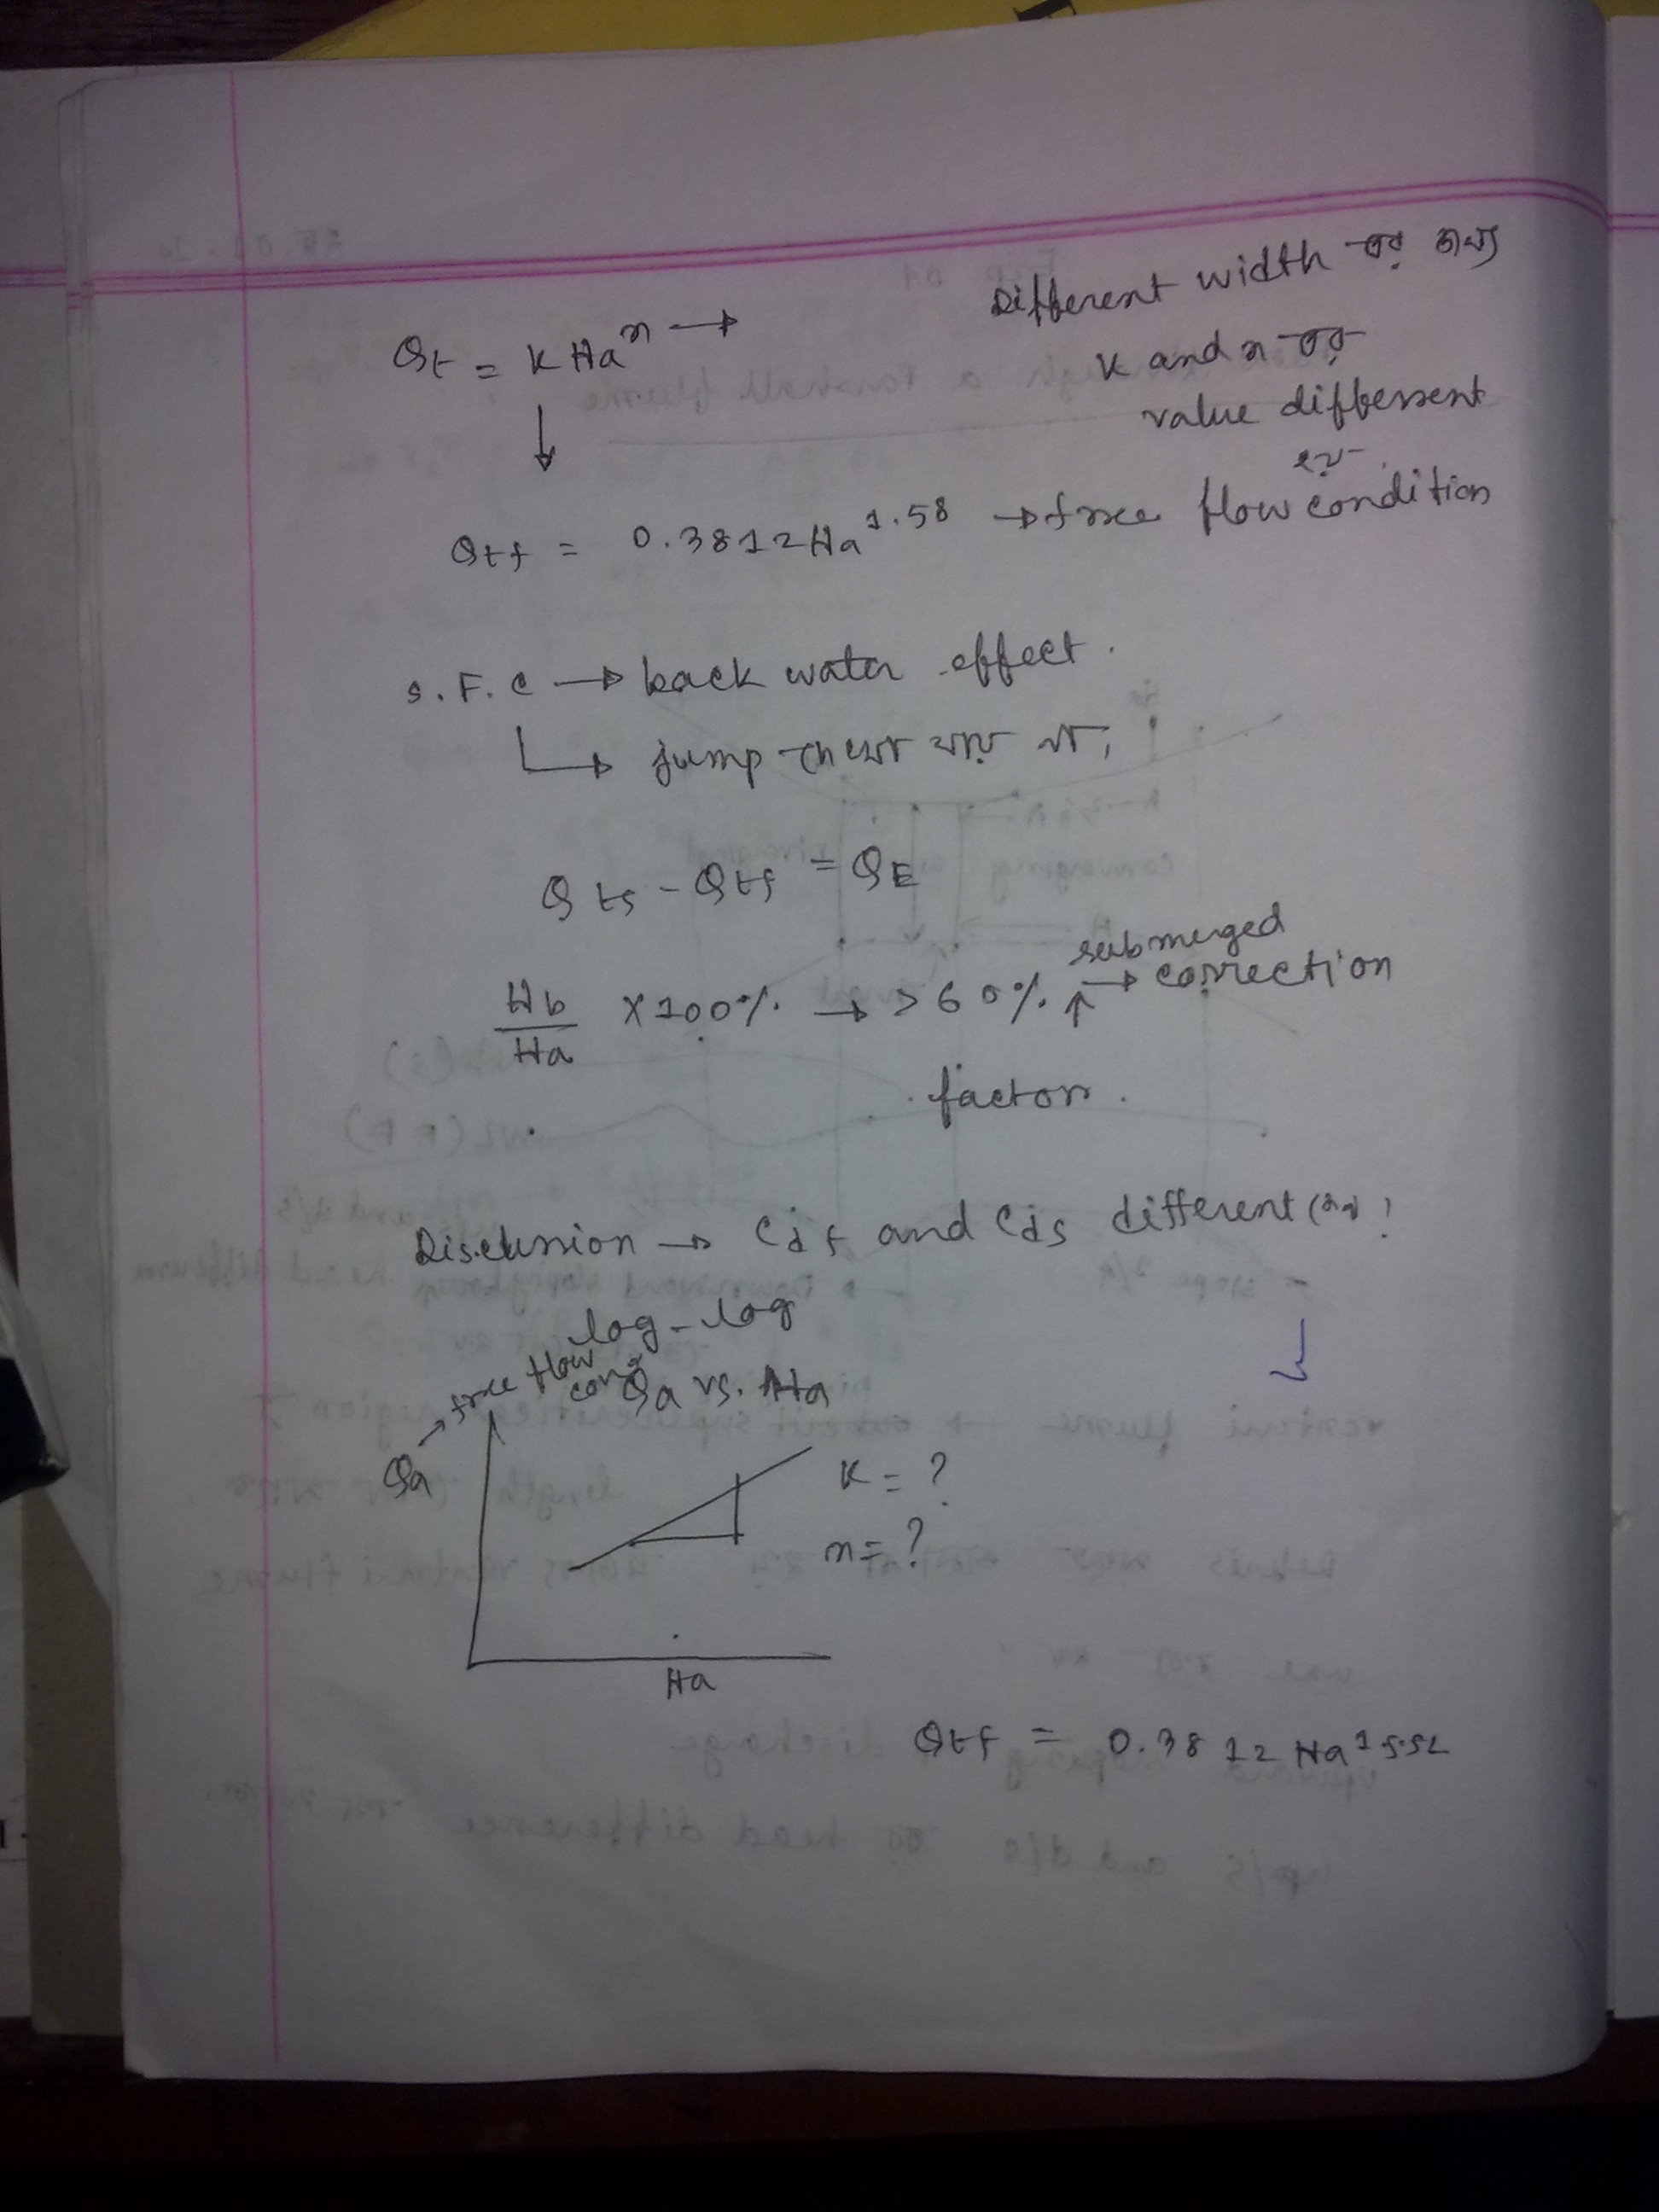 Different width এর জন্য
Qt = K Ha^n →
K and n এর
value different
হয়
Qtf = 0.3812 Ha^1.58 → free flow condition
S.F.C → back water effect.
↳ jump দেখা যায় না,
Qts - Qtf = QE
submerged
Hb/Ha X 100% → > 60% ↑ → correction
factor.
Discussion → Cdf and Cds different কেন?
log-log
Qa → free flow
Qa vs. Ha
K = ?
n = ?
Ha
Qtf = 0.3812 Ha